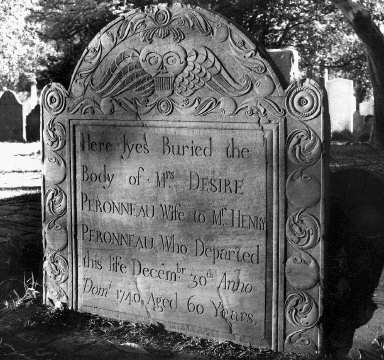 Here lyes Buried the
Body of Mrs DESIRE
PERONNEAU Wife to Mr HENRY
PERONNEAU Who Departed
this life Decembr 30th Anno
Domi 1740 Aged 60 Years